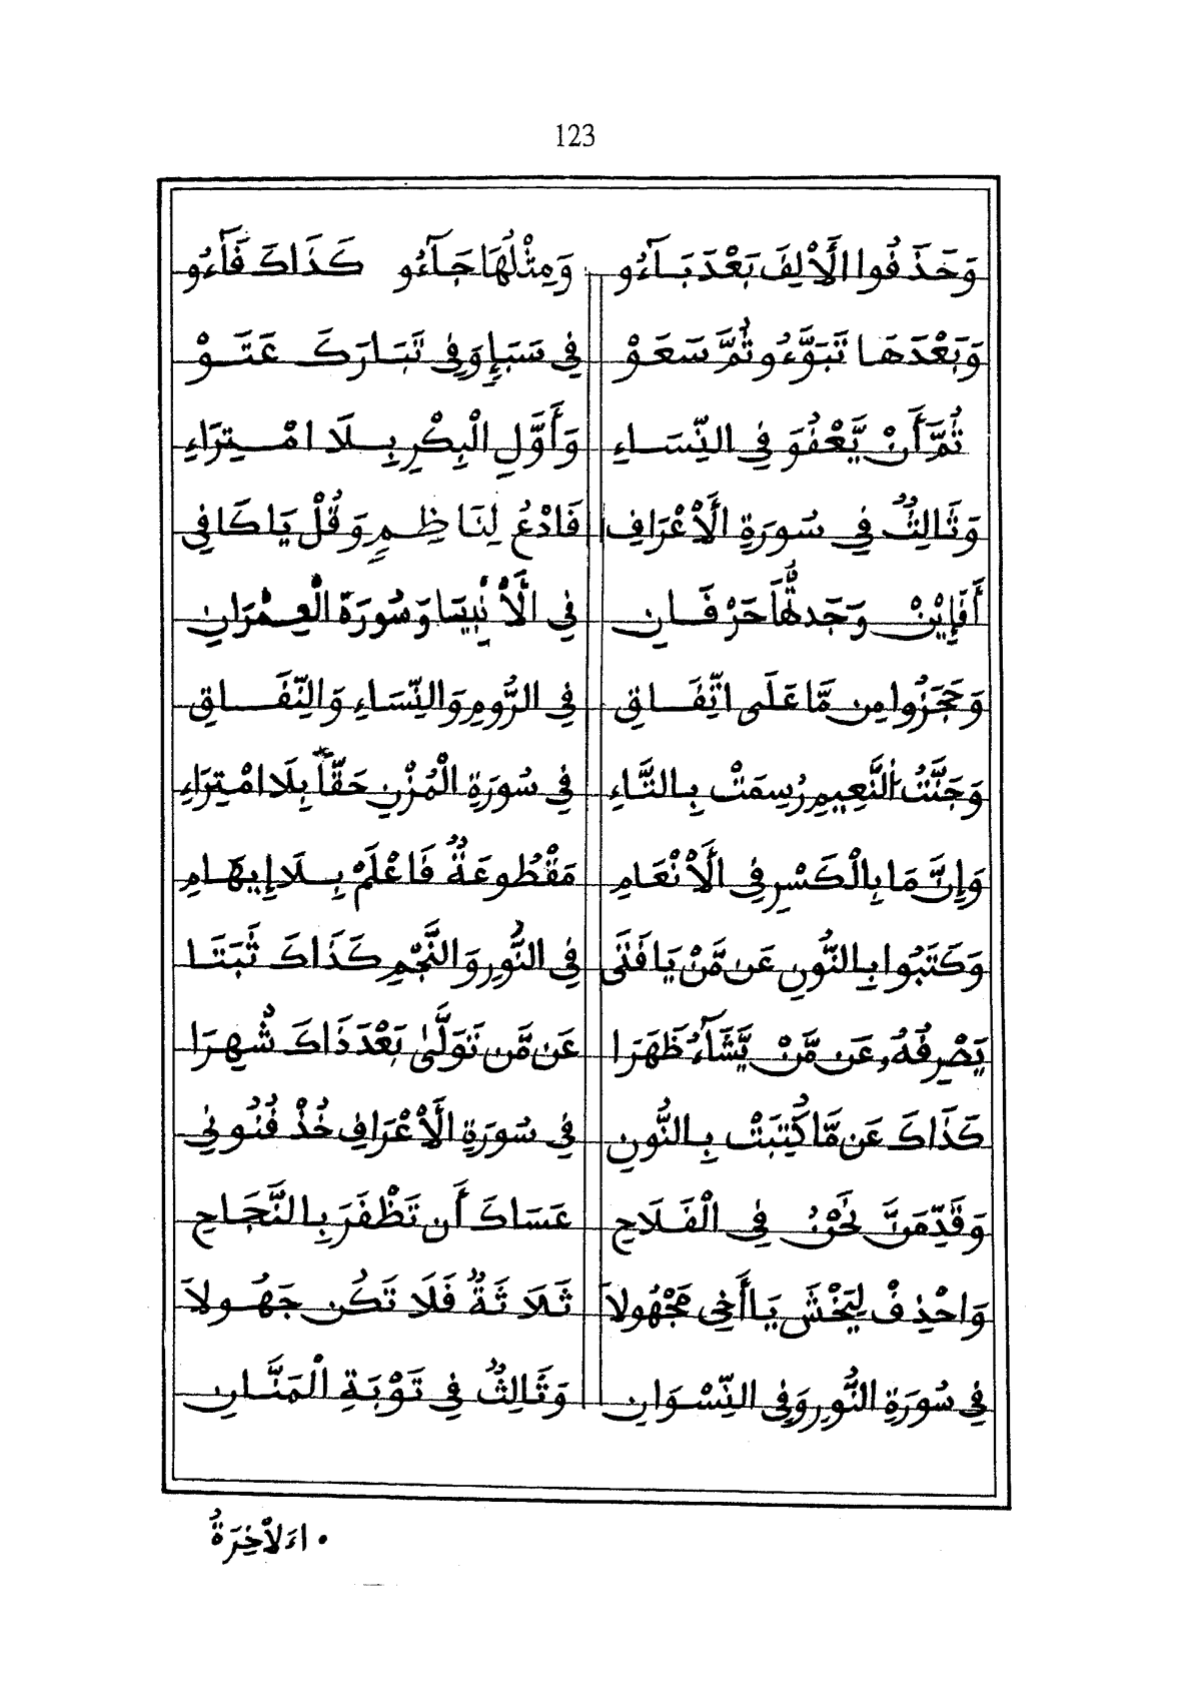 123
وَحَذَفُوا الَأْلِفَ بَعْدَ بَآءُو وَمِثْلُهَا جَآءُو كَذَاكَ فَآءُو
وَبَعْدَهَا تَبَوَّءُو ثُمَّ سَعَوْ فِي سَبَإٍ وَفِي تَبَارَكَ عَتَوْ
ثُمَّ أَنْ يَّعْفُوَ فِي النِّسَاءِ وَأَوَّلِ الْبِكْرِ بِلَا امْتِرَاءِ
وَثَالِثٌ فِي سُورَةِ الَأْعْرَافِ فَادْعُ لِنَاظِمٍ وَقُلْ يَا كَافِي
أَفَإِيْنْ وَجَدتُّهَا حَرْفَانِ فِي الَأْنْبِيَا وَسُورَةِ الْعِمْرَانِ
وَحَجَزُوا مِن مَّا عَلَى اتِّفَاقِ فِي الرُّومِ وَالنِّسَاءِ وَالنِّفَاقِ
وَجَنَّتُ النَّعِيمِ رُسِمَتْ بِالتَّاءِ فِي سُورَةِ الْمُزْنِ حَقّاً بِلَا امْتِرَاءِ
وَإِنَّ مَا بِالْكَسْرِ فِي الَأْنْعَامِ مَقْطُوعَةٌ فَاعْلَمْ بِلَا إِيهَامِ
وَكَتَبُوا بِالنُّونِ عَن مَّنْ يَا فَتَى فِي النُّورِ وَالنَّجْمِ كَذَاكَ ثَبَتَا
يَصْرِفُهُ عَن مَّنْ يَّشَآءُ ظَهَرَا عَن مَّن تَوَلَّىٰ بَعْدَ ذَاكَ شُهِرَا
كَذَاكَ عَن مَّا كُتِبَتْ بِالنُّونِ فِي سُورَةِ الَأْعْرَافِ خُذْ فُنُونِي
وَقَدِّمَنَّ نَحْنُ فِي الْفَلَاحِ عَسَاكَ أَن تَظْفَرَ بِالنَّجَاحِ
وَاحْذِفْ لِيَخْشَ يَا أَخِي مَجْهُولاَ ثَلَاثَةٌ فَلَا تَكُن جَهُولاَ
فِي سُورَةِ النُّورِ وَفِي النِّسْوَانِ وَثَالِثٌ فِي تَوْبَةِ الْمَنَّانِ
• اءَلاْخِرَةُ